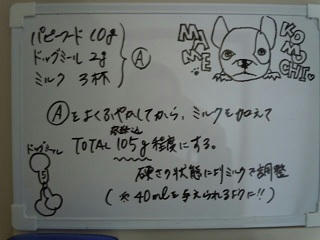 パピーフード 10g
ドッグミール 2g
ミルク 3杯
Ⓐ
MAME
KOMOCHI
Ⓐをよくふやかしてから、ミルクを加えて
TOTAL 105g程度にする。
硬さの状態によりミルクで調整
(※40mlを与えられるように!!)
ドッグミール